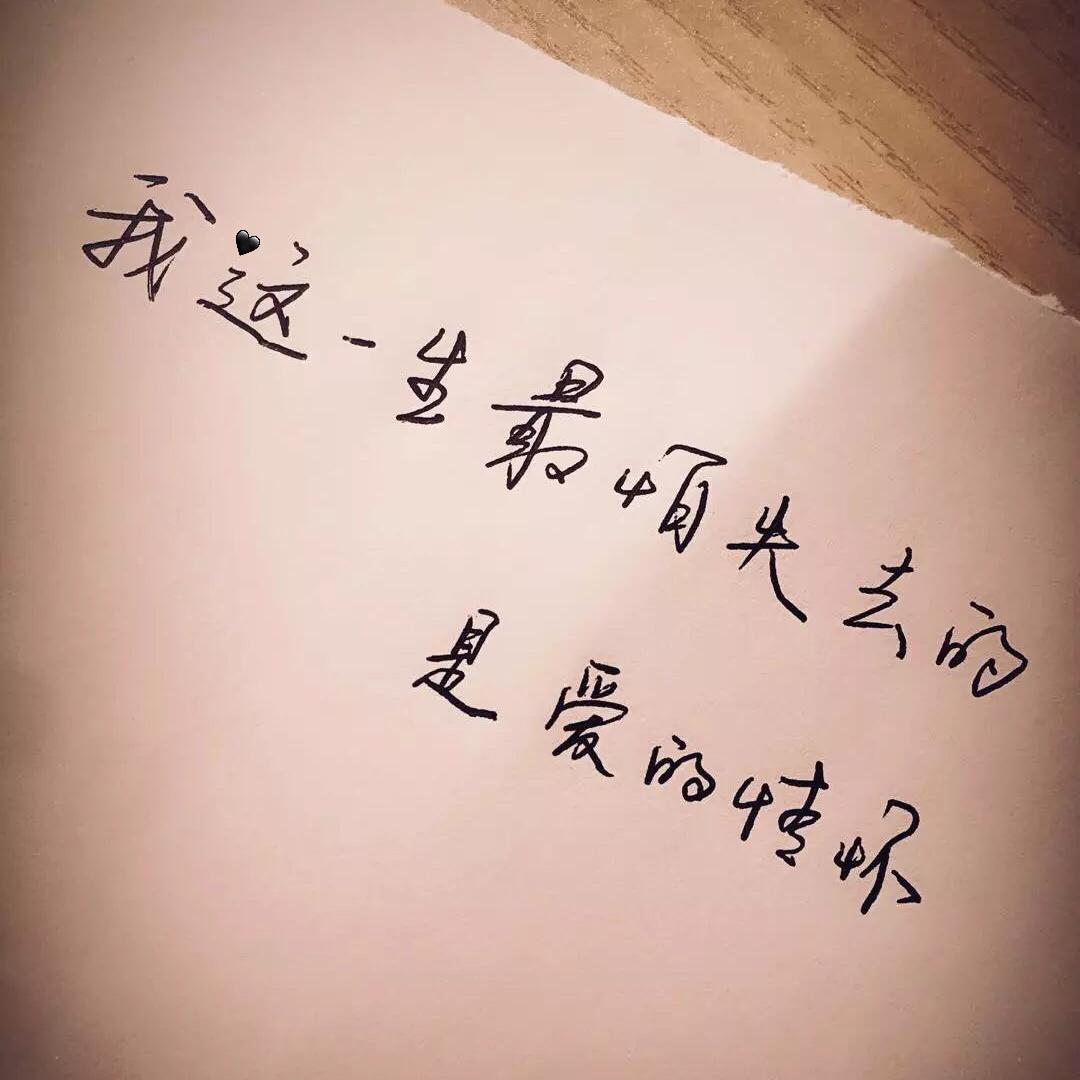 我这一生最怕失去的
是爱的情怀